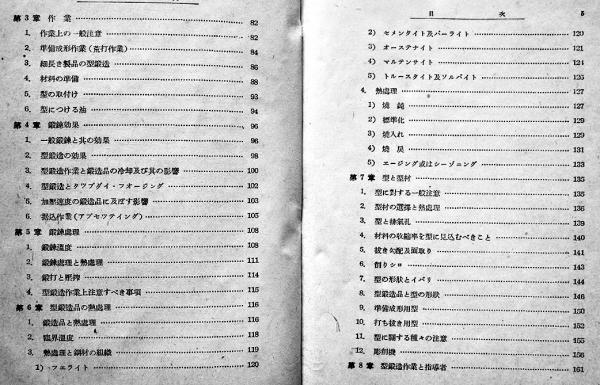 第3章 作業 82
1. 作業上の一般注意 82
2. 準備成形作業(荒打作業) 84
3. 細長き製品の型鍛造 86
4. 材料の準備 88
5. 型の取付け 93
6. 型につける油 94
第4章 鍛錬効果 96
1. 一般鍛錬と其の効果 96
2. 型鍛造の効果 98
3. 型鍛造作業と鍛造品の冷却及び其の影響 100
4. 型鍛造とタツプダイ・フオージング 102
5. 加壓速度の鍛造品に及ぼす影響 103
6. 据込作業(アプセツテイング) 105
第5章 鍛錬處理 108
1. 鍛錬溫度 108
2. 鍛錬處理と熱處理 111
3. 鍛打と壓搾 114
4. 型鍛造作業上注意すべき事項 115
第6章 型鍛造品の熱處理 116
1. 鍛造品と熱處理 116
2. 臨界溫度 118
3. 熱處理と鋼材の組織 119
1) フエライト 120
目 次 5
2) セメンタイト及パーライト 120
3) オーステナイト 121
4) マルテンサイト 124
5) トルースタイト及ソルバイト 125
4. 熱處理 127
1) 燒鈍 127
2) 標準化 129
3) 燒入れ 129
4) 燒戻 131
5) エージング或はシーゾニング 133
第7章 型と型材 135
1. 型に對する一般注意 135
2. 型材の選擇と熱處理 136
3. 型と排氣孔 139
4. 材料の收縮率を型に見込むべきこと 140
5. 拔き勾配及面取り 141
6. 削りシロ 143
7. 型の形狀とイバリ 144
8. 型鍛造品と型の形狀 146
9. 準備成形用型 150
10. 打ち拔き用型 152
11. 型に關する種々の注意 155
12. 彫刻機 156
第8章 型鍛造作業と指導者 161